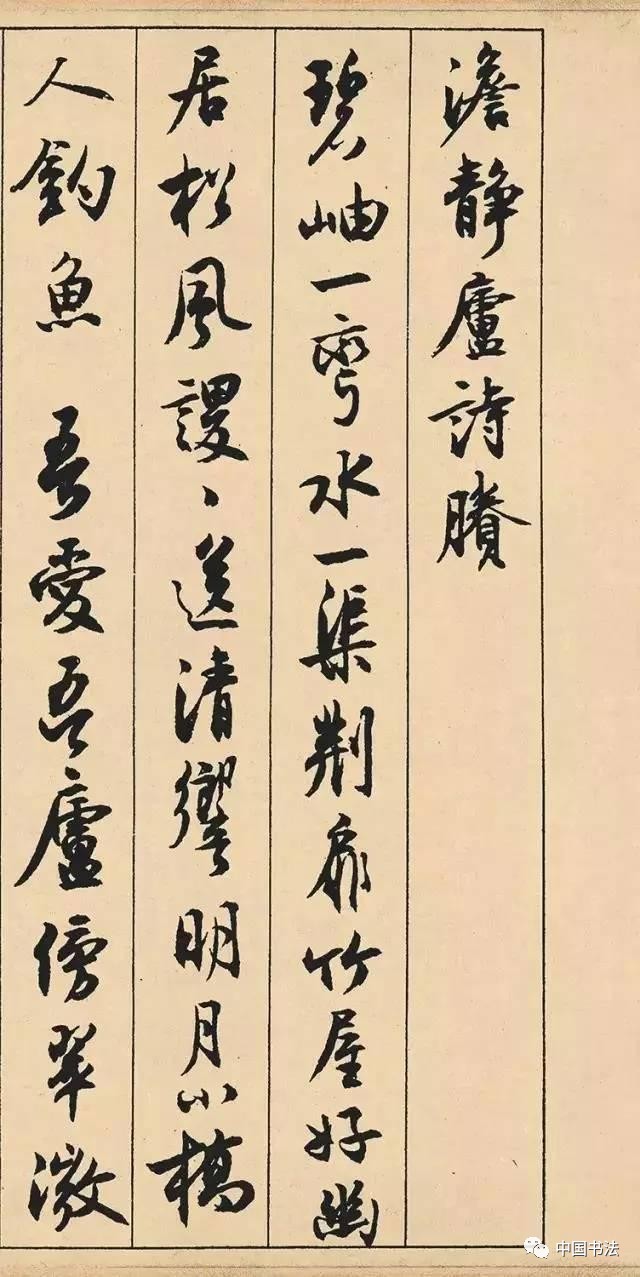 澹靜廬詩賸
碧岫一彎水一渠荆扉竹屋好幽
居松風謖〻送清響明月小橋
人釣魚 吾愛吾廬傍翠微
中国书法